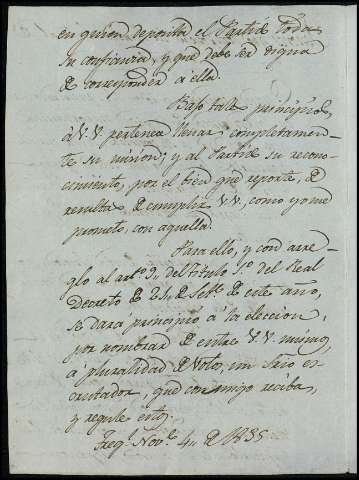 en quien deposita el Partido toda
su confianza, y que debe ser digna
de corresponder á ella.
Bajo tales principios,
á V.V. pertenece llenar completamen-
te su mision; y al Partido su recono-
cimiento, por el bien que reporte, de
resultas de cumplir V.V. como yo me
prometo, con aquella.
Para ello, y con arre-
glo al art.º 9,, del titulo 1.º del Real
Decreto de 24,, de Set.e de este año,
se dará principio á la eleccion,
por nombrar de entre V.V. mismos,
á pluralidad de votos, un Srio es-
crutador, que conmigo reciba,
y regule estos.
Nov.e 4,, de 1835